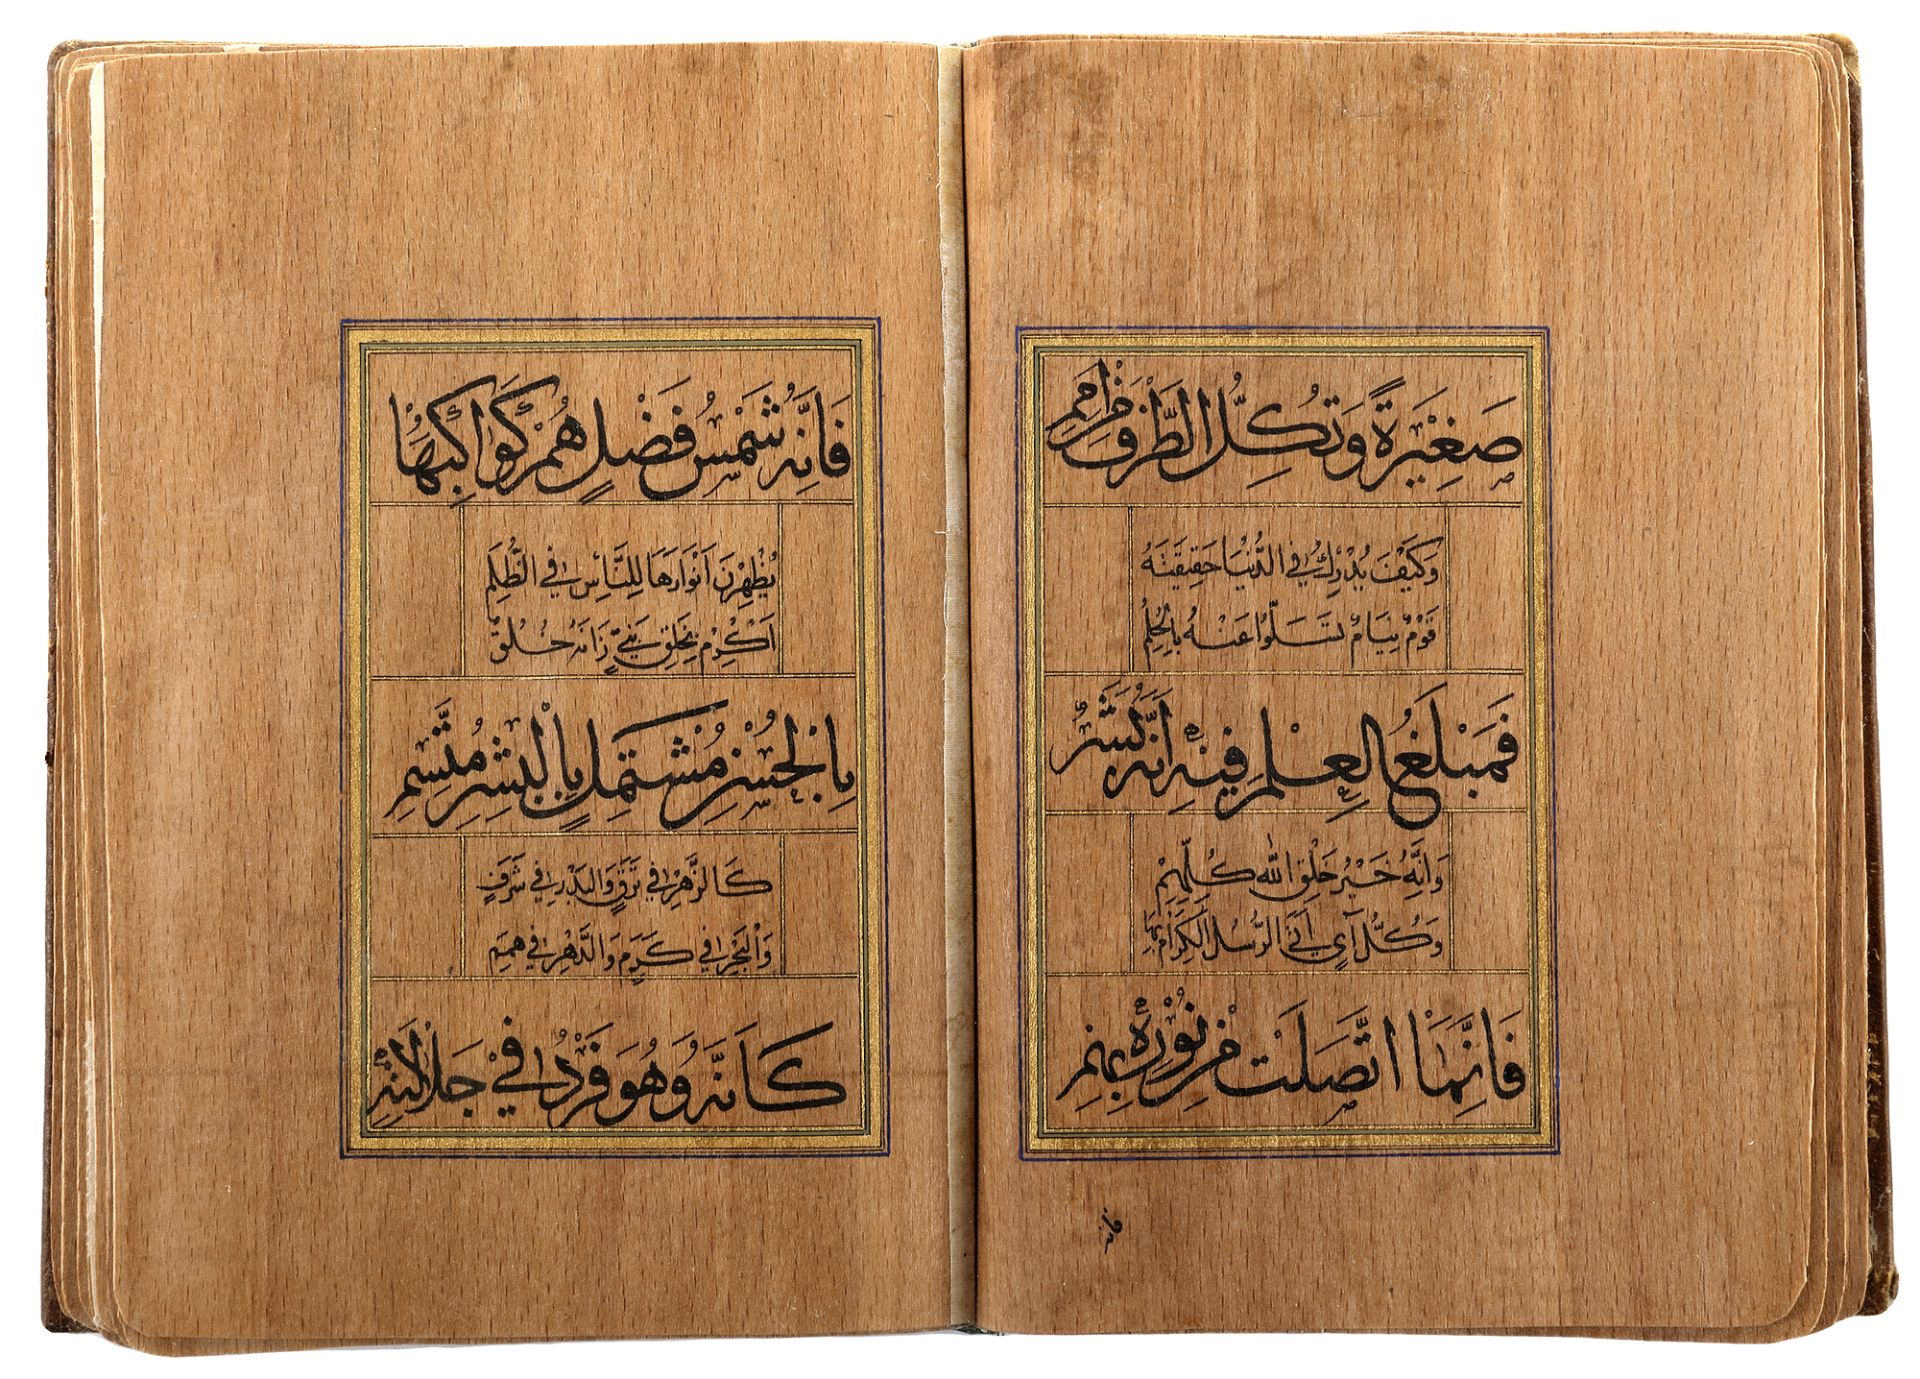 صَغِيْرَةً وَتُكِلُّ الطَّرْفَ مِنْ اَمَمِ
وَكَيْفَ يُدْرِكُ فِي الدُّنْيَا حَقِيقَتَهُ
قَوْمٌ نِيَامٌ تَسَلَّوْا عَنْهُ بِالْحُلُمِ
فَمَبْلَغُ الْعِلْمِ فِيْهِ اَنَّهُ بَشَرٌ
وَاَنَّهُ خَيْرُ خَلْقِ اللّٰهِ كُلِّهِمِ
وَكُلُّ آيٍ اَتَى الرُّسْلُ الْكِرَامُ بِهَا
فَاِنَّمَا اتَّصَلَتْ مِنْ نُوْرِهِ بِهِمِ
فانه
فَاِنَّهُ شَمْسُ فَضْلٍ هُمْ كَوَاكِبُهَا
يُظْهِرْنَ اَنْوَارَهَا لِلنَّاسِ فِي الظُّلَمِ
اَكْرِمْ بِخَلْقِ نَبِيٍّ زَانَهُ خُلُقٌ
بِالْحُسْنِ مُشْتَمِلٍ بِالْبِشْرِ مُتَّسِمِ
كَالزَّهْرِ فِي تَرَفٍ وَالْبَدْرِ فِي شَرَفٍ
وَالْبَحْرِ فِي كَرَمٍ وَالدَّهْرِ فِي هِمَمِ
كَاَنَّهُ وَهُوَ فَرْدٌ فِيْ جَلَالَتِهِ